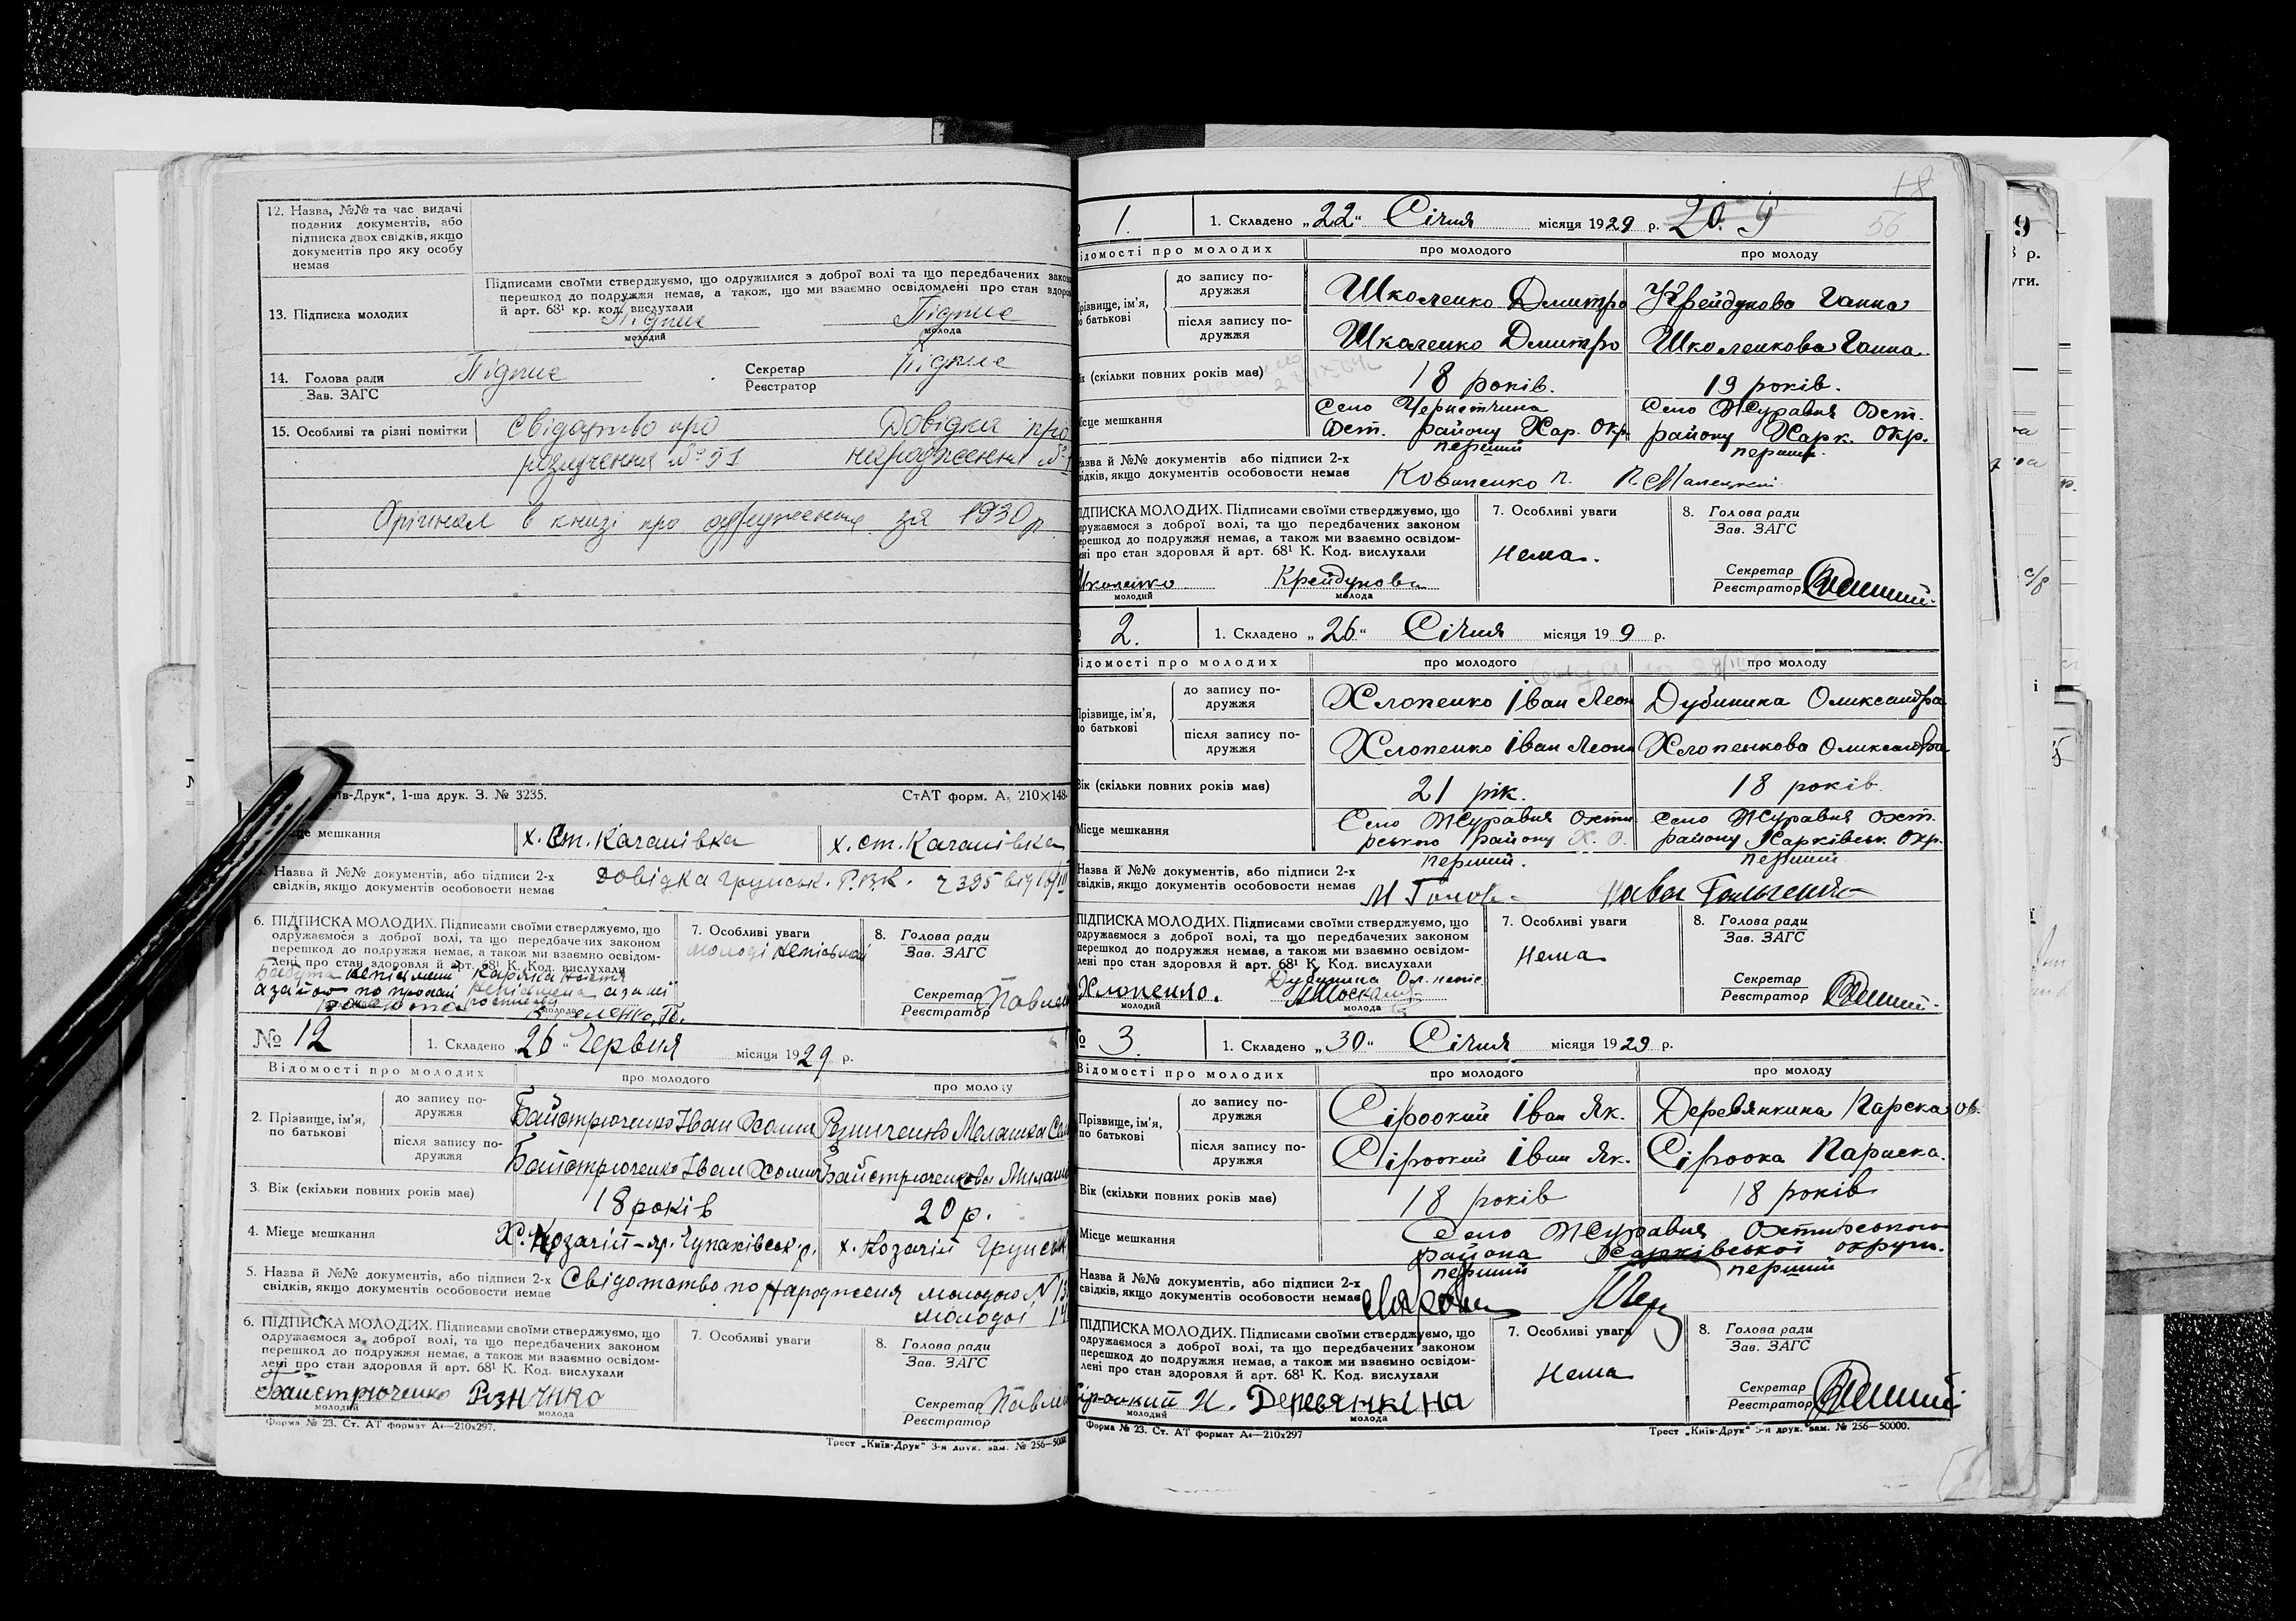 12. Назва, №№ та час видачі
поданих документів, або
підписка двох свідків, якщо
документів про яку особу
немає
13. Підписка молодих
Підписами своїми стверджуємо, що одружилися з доброї волі та що передбачених законо
перешкод до подружжя немає, а також, що ми взаємно освідомлені про стан здоро
й арт. 68¹ кр. код. вислухали
Підпис Підпис
молодий молода
14. Голова ради
Зав. ЗАГС
Підпис
Секретар
Реєстратор
Підпис
15. Особливі та різні помітки
Свідоцтво про Довідка про
розлучення № 51 народження №
Орігинал в книзі про одруження за 1930 р.
їв-Друк“, 1-ша друк. З. № 3235. СтАТ форм. А₅ 210×148
це мешкання
х. Ст. Качанівка х. ст. Качанівка
Назва й №№ документів, або підписи 2-х
свідків, якщо документів особовости немає
Довідка Грунськ. Р.В.К.
6. ПІДПИСКА МОЛОДИХ. Підписами своїми стверджуємо, що
одружаємося з доброї волі, та що передбачених законом
перешкод до подружжя немає, а також ми взаємно освідом-
лені про стан здоровля й арт. 68¹ К. Код. вислухали
7. Особливі уваги
молоді неписьмені
8. Голова ради
Зав. ЗАГС
Секретар
Реєстратор
молода
№ 12
1. Складено 26 “ Червня місяця 1929 р.
Відомості про молодих про молодого про молоду
2. Прізвище, ім’я,
по батькові
до запису по-
дружжя
Байстрюченко Іван Хоми Резниченко Мелашка
після запису по-
дружжя
Байстрюченко Іван Хоми Байстрюченкова
3. Вік (скільки повних років має) 18 років 20 р.
4. Місце мешкання Х. Козачій-яр. х. Козачій
5. Назва й №№ документів, або підписи 2-х
свідків, якщо документів особовости немає
Свідотство по народженя молодого N
молодої
6. ПІДПИСКА МОЛОДИХ. Підписами своїми стверджуємо, що
одружаємося з доброї волі, та що передбачених законом
перешкод до подружжя немає, а також ми взаємно освідом-
лені про стан здоровля й арт. 68¹ К. Код. вислухали
Байстрюченко
молодий молода
7. Особливі уваги
8. Голова ради
Зав. ЗАГС
Секретар
Реєстратор
Форма № 23. Ст. АТ формат А₄—210х297.
Трест „Київ-Друк“ 3-я друк. зам. № 256—5000
56
1.
1. Складено „22“ Січня місяця 1929 р. 20.
ідомості про молодих про молодого про молоду
різвище, ім’я,
о батькові
до запису по-
дружжя
Школенко Дмитро Крейдунова Ганна
після запису по-
дружжя
Школенко Дмитро Школенкова Ганна
ік (скільки повних років має) 18 років. 19 років.
ісце мешкання
Село Чернетчина Село Журавня Охт.
Охт. району Хар. Окр. району Харк. Окр.
перший перший.
азва й №№ документів або підписи 2-х
відків, якщо документів особовости немає
Коваленко П.
ІДПИСКА МОЛОДИХ. Підписами своїми стверджуємо, що
дружаємося з доброї волі, та що передбачених законом
ерешкод до подружжя немає, а також ми взаємно освідом-
ені про стан здоровля й арт. 68¹ К. Код. вислухали
Школенко Крейдунова
молодий молода
7. Особливі уваги
Нема.
8. Голова ради
Зав. ЗАГС
Секретар
Реєстратор
2.
1. Складено „26“ Січня місяця 19 9 р.
ідомості про молодих про молодого про молоду
Прізвище, ім’я,
по батькові
до запису по-
дружжя
Хлопенко Іван Леон Дубинина Олександра
після запису по-
дружжя
Хлопенко Іван Леони Хлопенкова Олександра
Вік (скільки повних років має) 21 рік. 18 років.
Місце мешкання
Село Журавня Охти Село Журавня Охт.
рського району Х. О. району Харківськ. Окр.
перший. перший
Назва й №№ документів, або підписи 2-х
свідків, якщо документів особовости немає
ПІДПИСКА МОЛОДИХ. Підписами своїми стверджуємо, що
одружаємося з доброї волі, та що передбачених законом
перешкод до подружжя немає, а також ми взаємно освідом-
лені про стан здоровля й арт. 68¹ К. Код. вислухали
Дубинина Ол.
Хлопенко.
молодий молода
7. Особливі уваги
Нема
8. Голова ради
Зав. ЗАГС
Секретар
Реєстратор
№ 3.
1. Складено „30“ Січня місяця 1929 р.
Відомості про молодих про молодого про молоду
Прізвище, ім’я,
по батькові
до запису по-
дружжя
Сіроокий Іван Як. Деревянкина Параска
після запису по-
дружжя
Сіроокий Іван Як. Сіроока Параска.
Вік (скільки повних років має) 18 років 18 років
Місце мешкання
Село Журавня Охтирського
района Харківської округи.
перший перший
Назва й №№ документів, або підписи 2-х
свідків, якщо документів особовости немає
ПІДПИСКА МОЛОДИХ. Підписами своїми стверджуємо, що
одружаємося з доброї волі, та що передбачених законом
перешкод до подружжя немає, а також ми взаємно освідом-
лені про стан здоровля й арт. 68¹ К. Код. вислухали
Сіроокий И. Деревянкіна
молодий молода
7. Особливі уваги
Нема
8. Голова ради
Зав. ЗАГС
Секретар
Реєстратор
Форма № 23. Ст. АТ формат А₄—210х297
Трест „Київ-Друк“ 3-я друк. зам. № 256—50000.